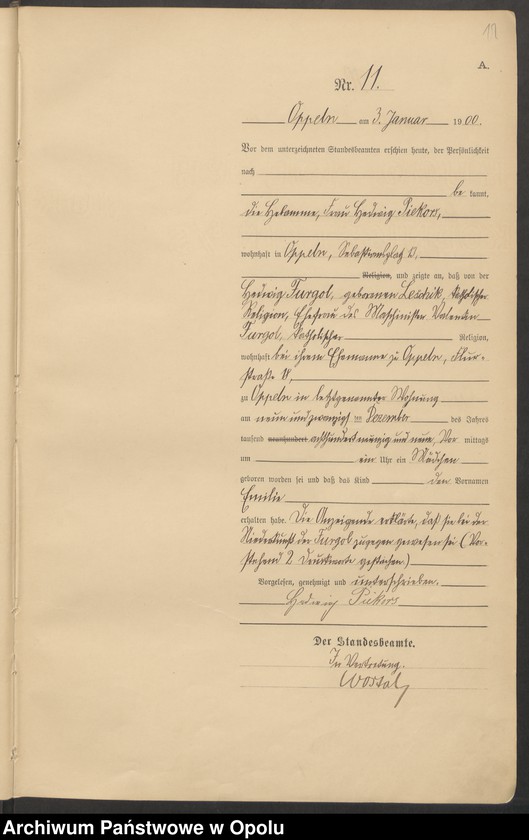 A.
Nr. 11.
Oppeln am 3. Januar 1900.
Vor dem unterzeichneten Standesbeamten erschien heute, der Persönlichkeit
nach
be kannt,
die Hebamme, Frau Hedwig Piekors,
wohnhaft in Oppeln,
Religion, und zeigte an, daß von der
Hedwig Furgol, geborenen Leschik, katholischer
Religion, Ehefrau des Maschinisten Valentin
Furgol, katholischer Religion,
wohnhaft bei ihrem Ehemanne zu Oppeln, Flur-
straße
zu Oppeln in letztgenannter Wohnung
am neun und zwanzigsten Dezember des Jahres
tausend neunhundert achthundert neunzig und neun, Vor mittags
um ein Uhr ein Mädchen
geboren worden sei und daß das Kind den Vornamen
Emilie
erhalten habe. Die Anzeigende erklärte, daß sie bei der
Niederkunft der Furgol zugegen gewesen sei. (Vor-
stehend 2 Druckworte gestrichen.)
Vorgelesen, genehmigt und unterschrieben.
Hedwig Piekors
Der Standesbeamte.
In Vertretung.
Archiwum Państwowe w Opolu